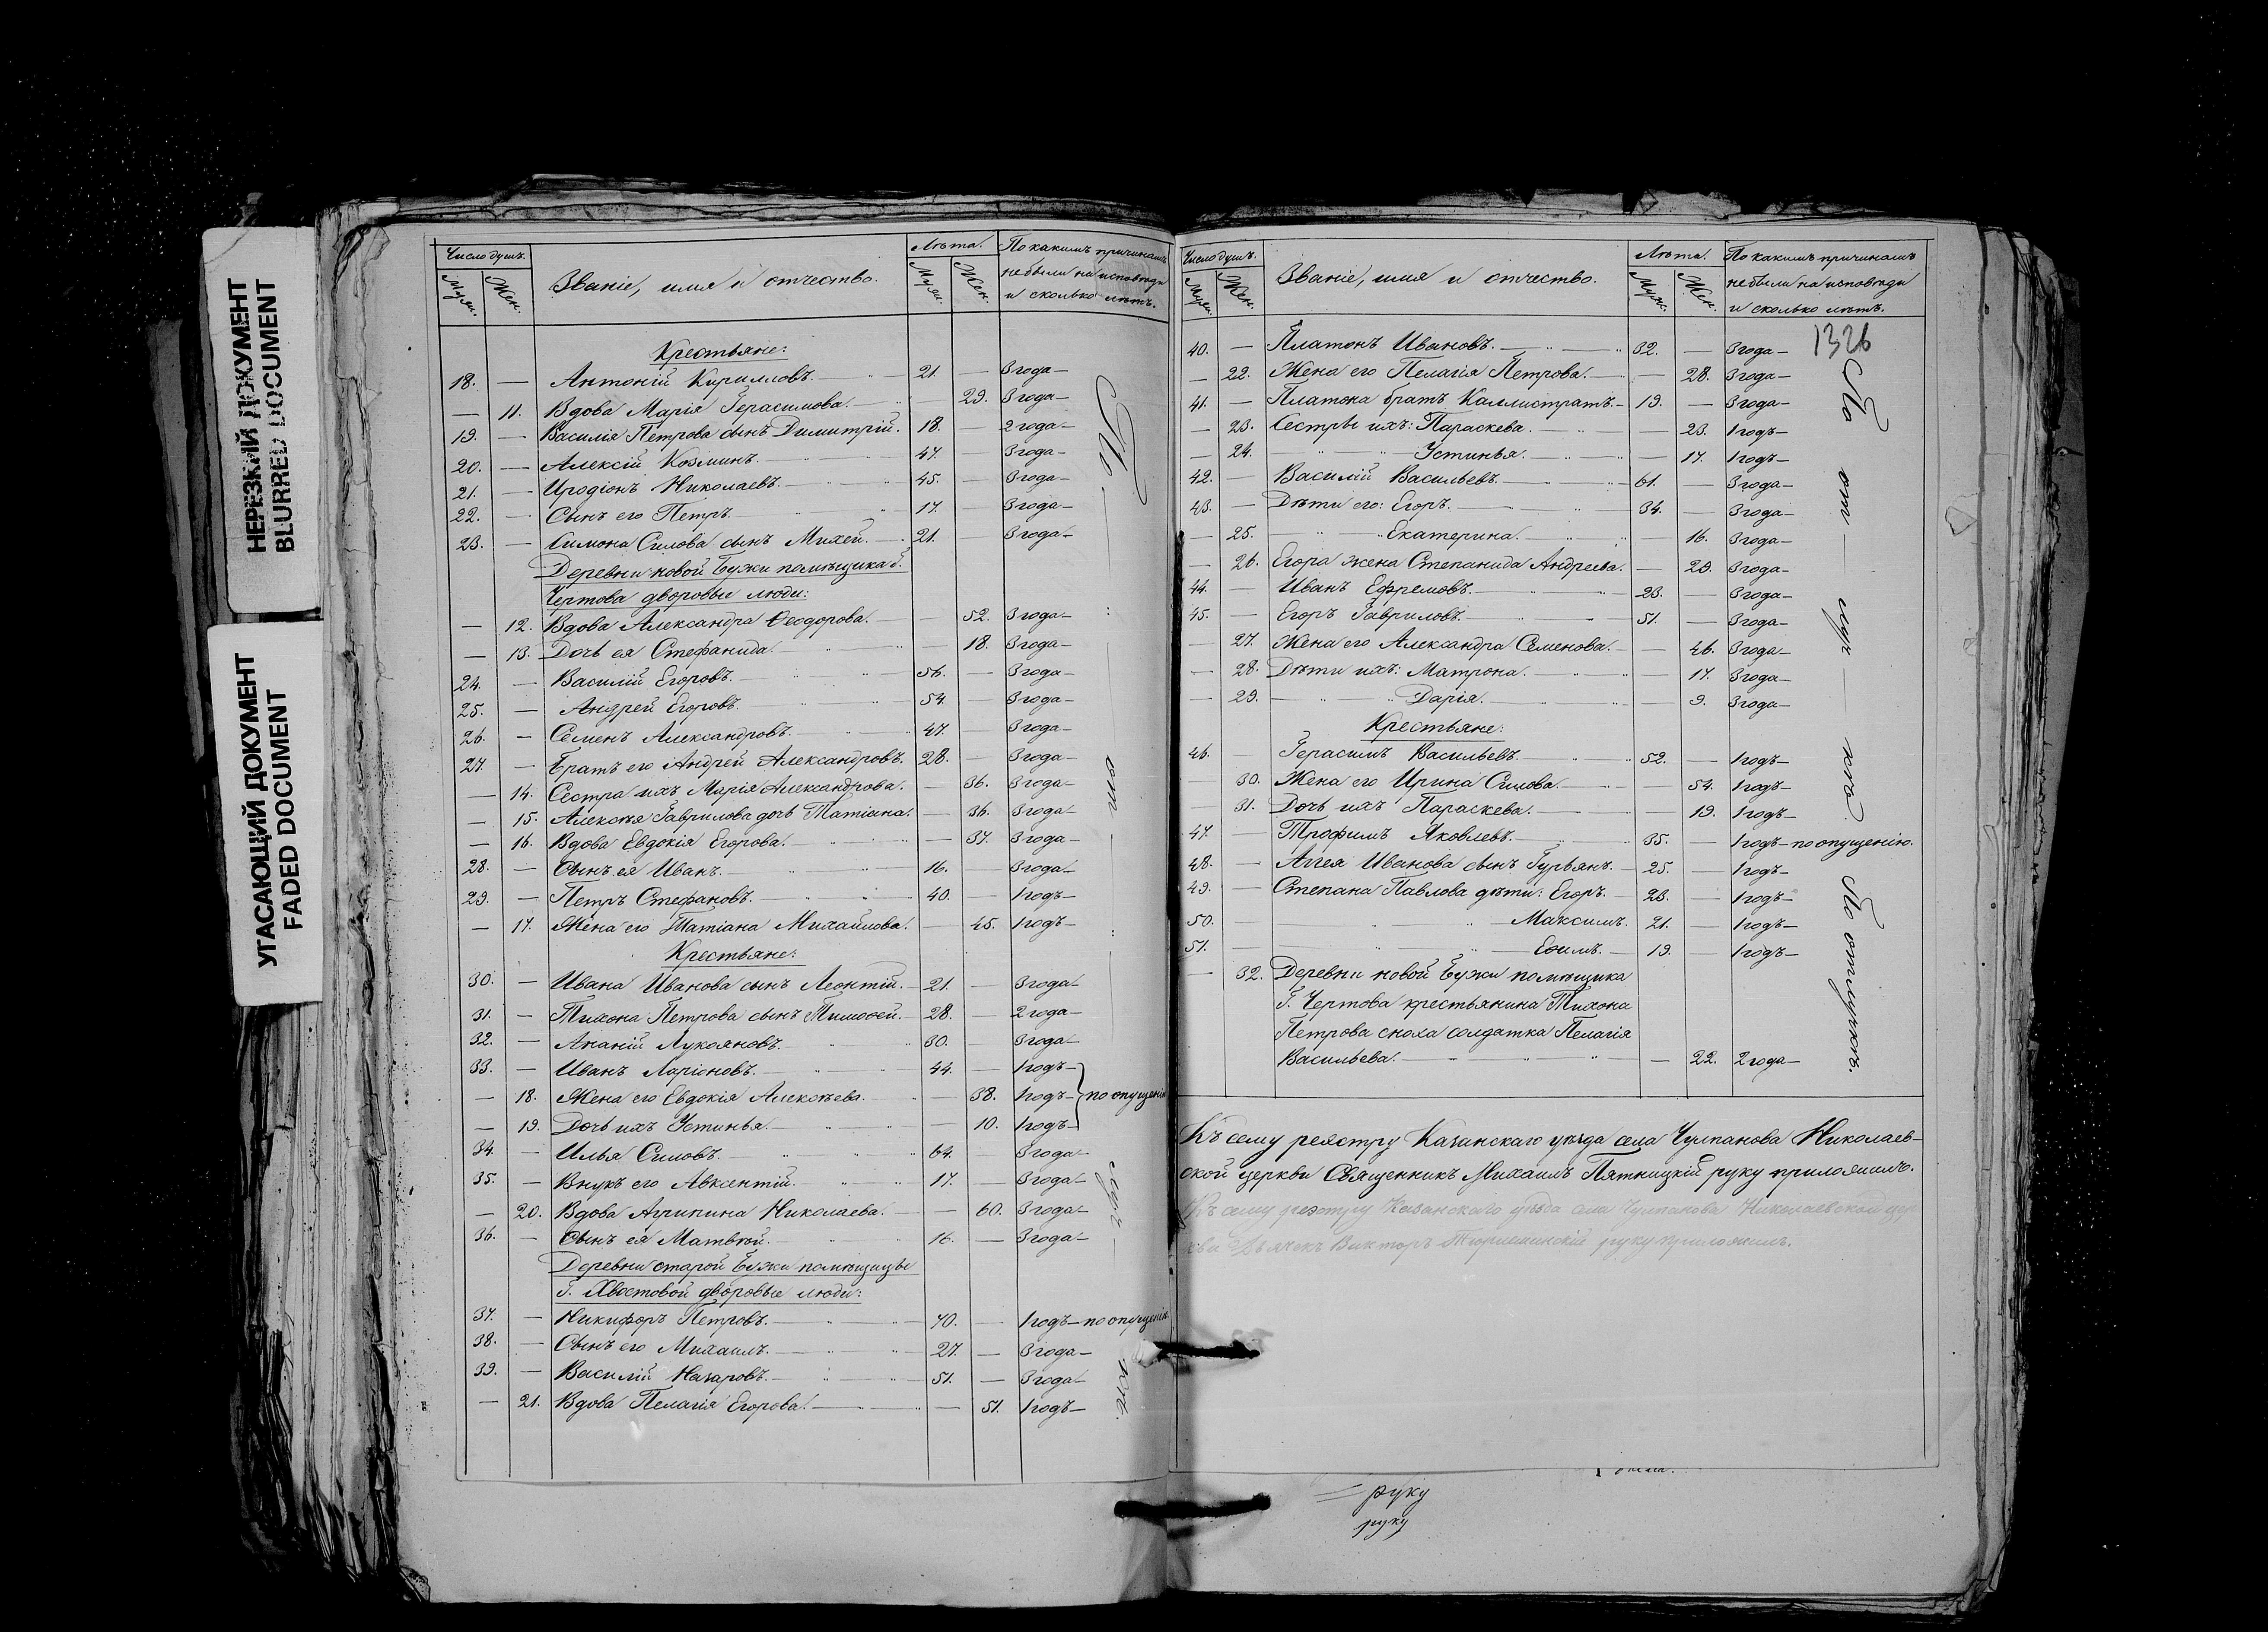 НЕРЕЗКИЙ ДОКУМЕНТ
BLURRED DOCUMENT
УГАСАЮЩИЙ ДОКУМЕНТ
FADED DOCUMENT
Число душъ. Званіе, имя и отчество. Лѣта. По какимъ причинамъ
не были на исповѣди
и сколько лѣтъ.
Муж. Жен. Муж. Жен.
Крестьяне:
18. — Антоній Кирилловъ. 21. — 3 года —
— 11. Вдова Марія Герасимова. — 29. 3 года —
19. — Василія Петрова сынъ Димитрій. 18. — 2 года —
20. — Алексій Козминъ. 47. — 3 года —
21. — Иродіонъ Николаевъ. 45. — 3 года —
22. — Сынъ его Петръ. 17. — 3 года —
23. — Симона Силова сынъ Михей. 21. 3 года —
Деревни новой Бужи помѣщика Г.
Чертова дворовые люди:
— 12. Вдова Александра Ѳеодорова. — 52. 3 года —
— 13. Дочь ея Стефанида. — 18. 3 года —
24. — Василій Егоровъ. 56. — 3 года —
25. — Андрей Егоровъ. 54. 3 года —
26. — Семенъ Александровъ. 47. 3 года —
27. — Братъ его Андрей Александровъ. 28. — 3 года —
— 14. Сестра ихъ Марія Александрова. — 36. 3 года —
— 15. Алексѣя Гаврилова дочь Татіана. — 36. 3 года —
— 16. Вдова Евдокія Егорова. — 37. 3 года —
28. — Сынъ ея Иванъ. 16. — 3 года —
29. — Петръ Стефановъ. 40. — 1 годъ —
— 17. Жена его Татіана Михайлова. — 45. 1 годъ —
Крестьяне:
30. — Ивана Иванова сынъ Леонтій. 21. — 3 года —
31. — Тихона Петрова сынъ Тимоѳей. 28. — 2 года —
32. — Ананій Лукояновъ. 30. — 3 года —
33. — Иванъ Ларіоновъ. 44. — 1 годъ —
— 18. Жена его Евдокія Алексѣева. — 38. 1 годъ — по опущенію
— 19. Дочь ихъ Устинья. — 10. 1 годъ —
34. — Илья Силовъ. 64. — 3 года —
35. — Внукъ его Авксентій. 17. — 3 года —
— 20. Вдова Агрипина Николаева. — 60. 3 года —
36. — Сынъ ея Матвѣй. 16. — 3 года —
Деревни старой Бужи помѣщицы
Г. Хвостовой дворовые люди:
37. — Никифоръ Петровъ. 70. — 1 годъ — по опущенію
38. — Сынъ его Михаилъ. 27. — 3 года —
39. — Василій Назаровъ. 51. — 3 года —
— 21. Вдова Пелагія Егорова. — 51. 1 годъ —
По от луч кѣ.
Число душъ. Званіе, имя и отчество. Лѣта. По какимъ причинамъ
не были на исповѣди
и сколько лѣтъ.
Муж. Жен. Муж. Жен.
1326
40. — Платонъ Ивановъ. 32. — 3 года —
— 22. Жена его Пелагія Петрова. — 28. 3 года —
41. — Платона братъ Каллистратъ. 19. — 3 года —
— 23. Сестры ихъ: Параскева. — 23. 1 годъ —
— 24. Устинья. — 17. 1 годъ —
42. — Василій Васильевъ. 61. — 3 года —
43. — Дѣти его: Егоръ. 34. — 3 года —
— 25. Екатерина. — 16. 3 года —
— 26. Егора жена Степанида Андреева. — 29. 3 года —
44. — Иванъ Ефремовъ. 23. — 3 года —
45. — Егоръ Гавриловъ. 51. — 3 года —
— 27. Жена его Александра Семенова. — 46. 3 года —
— 28. Дѣти ихъ: Матрона. — 17. 3 года —
— 29. Дарія. — 9. 3 года —
Крестьяне:
46. — Герасимъ Васильевъ. 52. — 1 годъ —
— 30. Жена его Ирина Силова. — 54. 1 годъ —
— 31. Дочь ихъ Параскева. — 19. 1 годъ —
47. — Трофимъ Яковлевъ. 35. — 1 годъ — по опущенію.
48. — Аггея Иванова сынъ Гурьянъ. 25. — 1 годъ —
49. — Степана Павлова дѣти: Егоръ. 23. — 1 годъ —
50. — Максимъ. 21. — 1 годъ —
51. — Еѳимъ. 19. — 1 годъ —
— 32. Деревни новой Бужи помѣщика
Г. Чертова крестьянина Тихона
Петрова сноха солдатка Пелагія
Васильева. — 22. 2 года —
По от — луч — кѣ. По отлучкѣ.
Къ сему реэстру Казанскаго уѣзда села Чулпанова Николаев-
ской церкви Священникъ Михаилъ Пятницкій руку приложилъ.
Къ сему реэстру Казанскаго уѣзда села Чулпанова Николаевской цер
кви Дьячекъ Викторъ руку приложилъ.
руку
руку